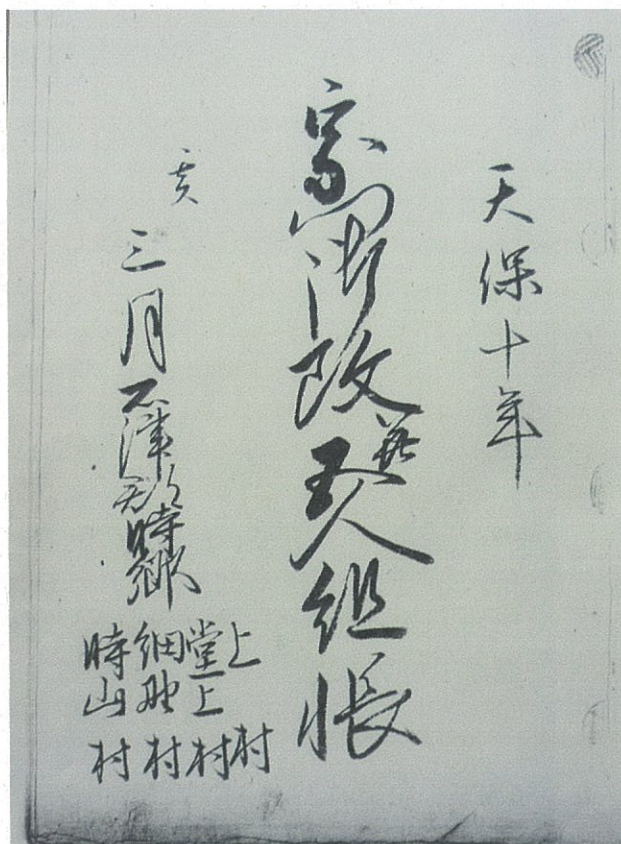 天保十年
宗門御改並五人組帳
亥三月石津郡時郷
上村
堂上村
細野村
時山村